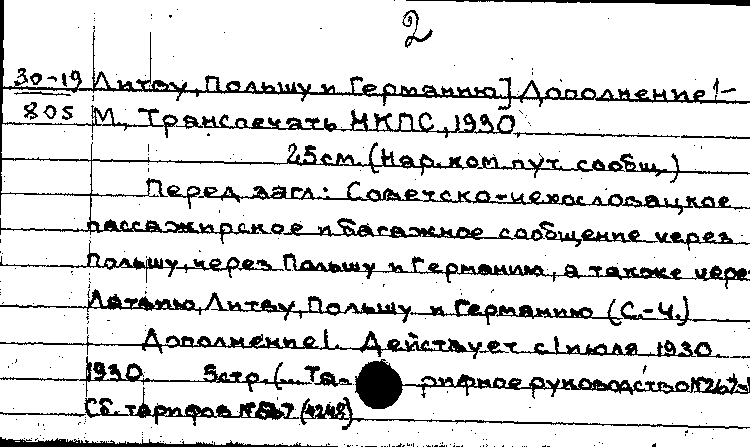 2
30-19 Литву, Польшу и Германию] Дополнение 1-
805 М., Транспечать НКПС, 1930.
25см. (Нар. ком. пут. сообщ.)
Перед загл.: Советско-чехословацкое
пассажирское и багажное сообщение через
Польшу, через Польшу и Германию, а также через
Латвию, Литву, Польшу и Германию (С.-Ч.)
Дополнение 1. Действует с 1 июля 1930.
1930. 5стр. (... Та- рифное руководство
Сб. тарифов (4248)